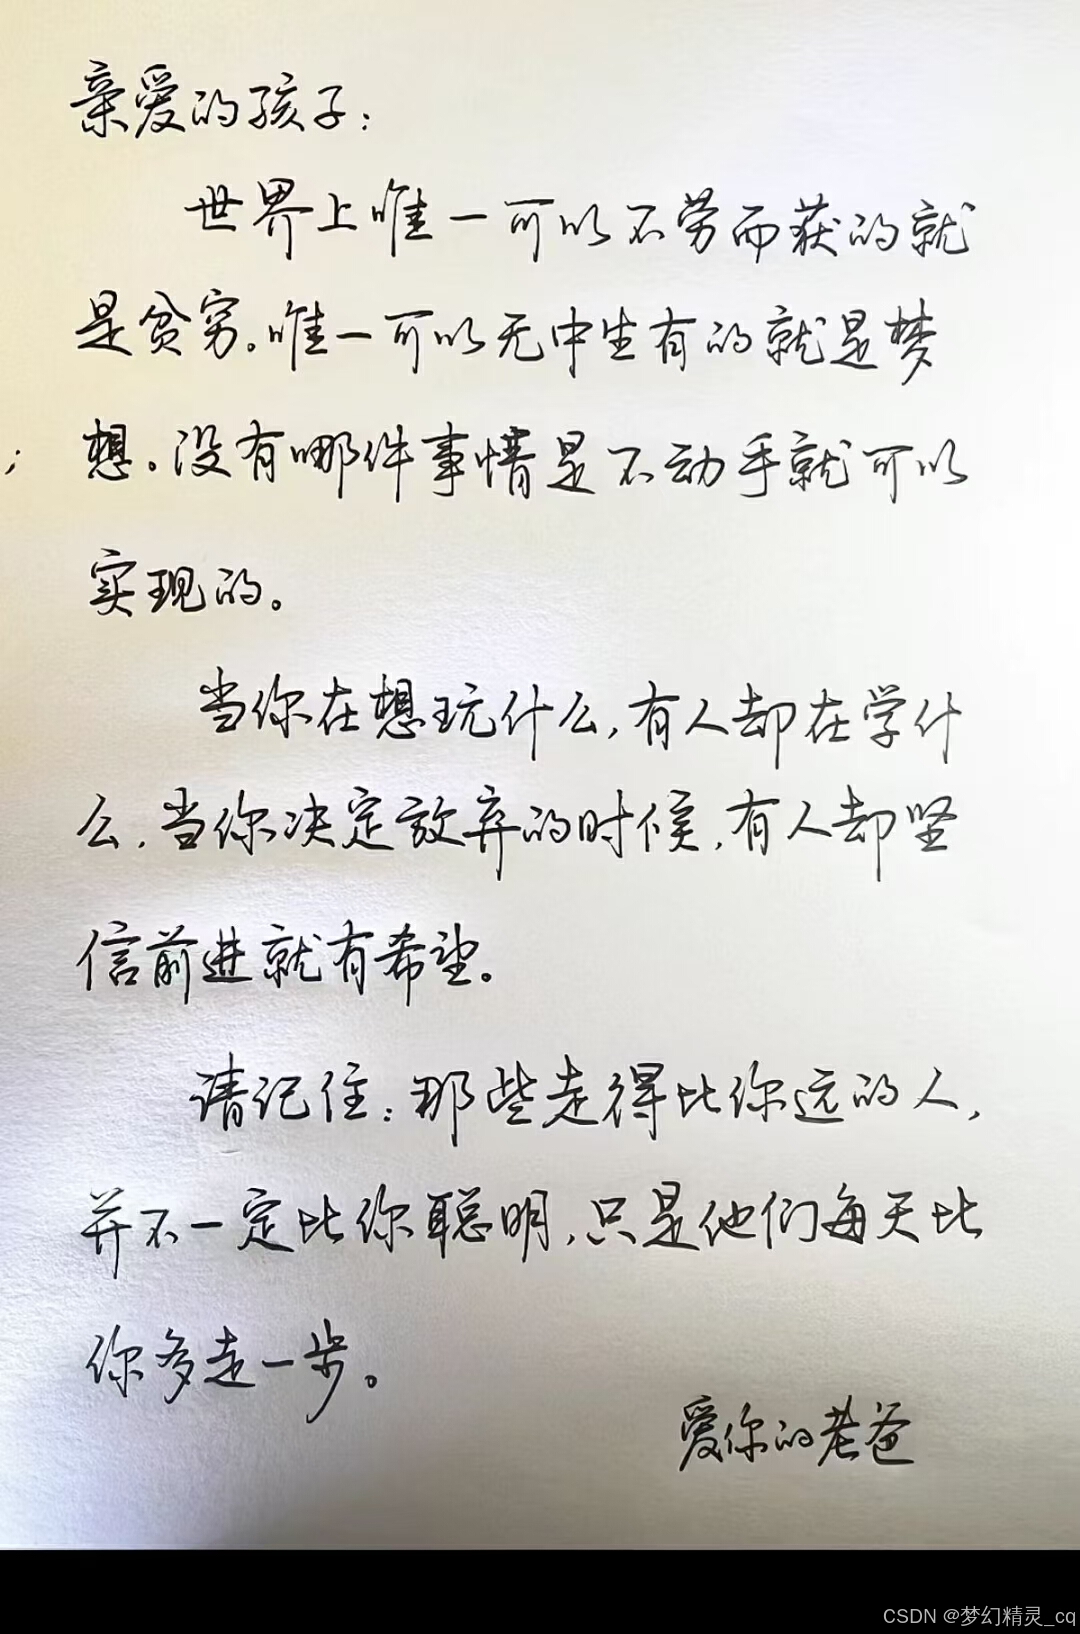 亲爱的孩子：
世界上唯一可以不劳而获的就
是贫穷。唯一可以无中生有的就是梦
想。没有哪件事情是不动手就可以
实现的。
当你在想玩什么，有人却在学什
么，当你决定放弃的时候，有人却坚
信前进就有希望。
请记住：那些走得比你远的人，
并不一定比你聪明，只是他们每天比
你多走一步。
爱你的老爸
CSDN @梦幻精灵_cq